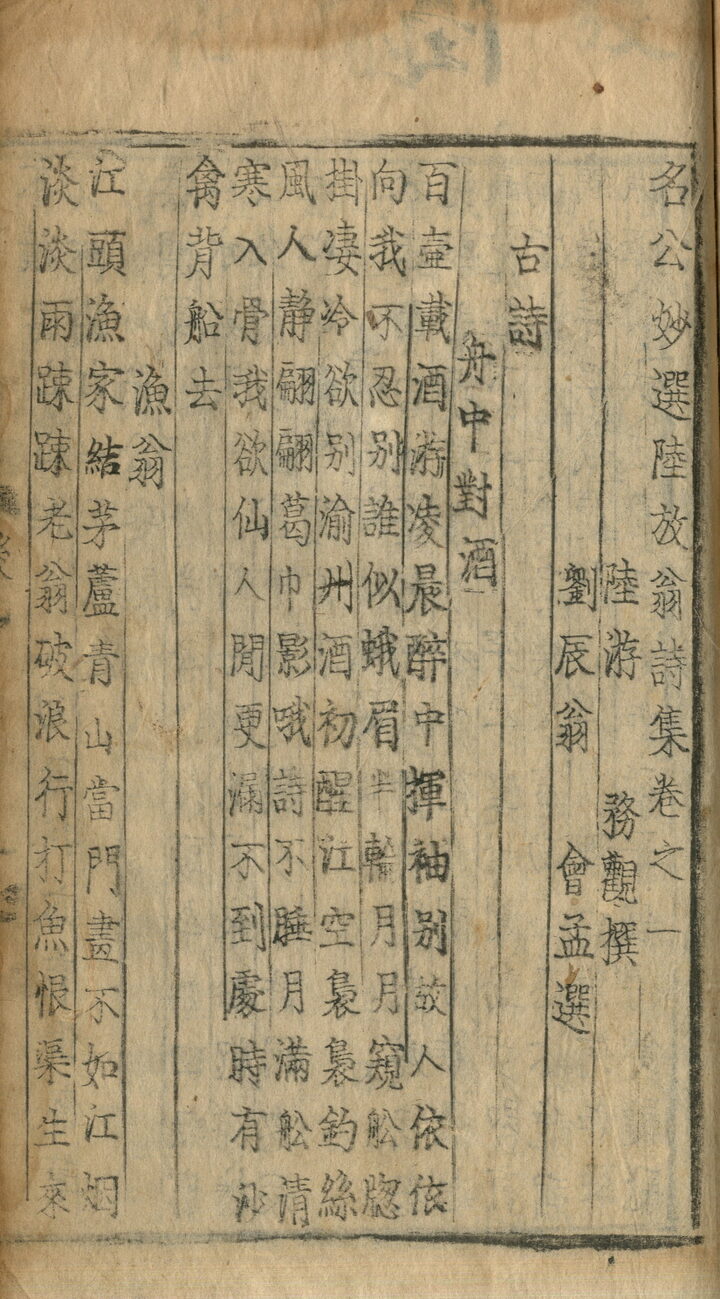 名公妙選陸放翁詩集卷之一
陸游 務觀撰
劉辰翁 會孟選
古詩
舟中對酒
百壺載酒游凌晨醉中揮袖别故人依依
向我不忍别誰似蛾眉半輪月月窺舩牕
掛凄冷欲别渝州酒初醒江空裊裊釣絲
風人静翩翩葛巾影哦詩不睡月滿舩清
寒入骨我欲仙人間更漏不到處時有沙
禽背船去
漁翁
江頭漁家結茅蘆青山當門畫不如江烟
淡淡雨踈踈老翁破浪行打魚恨渠生來